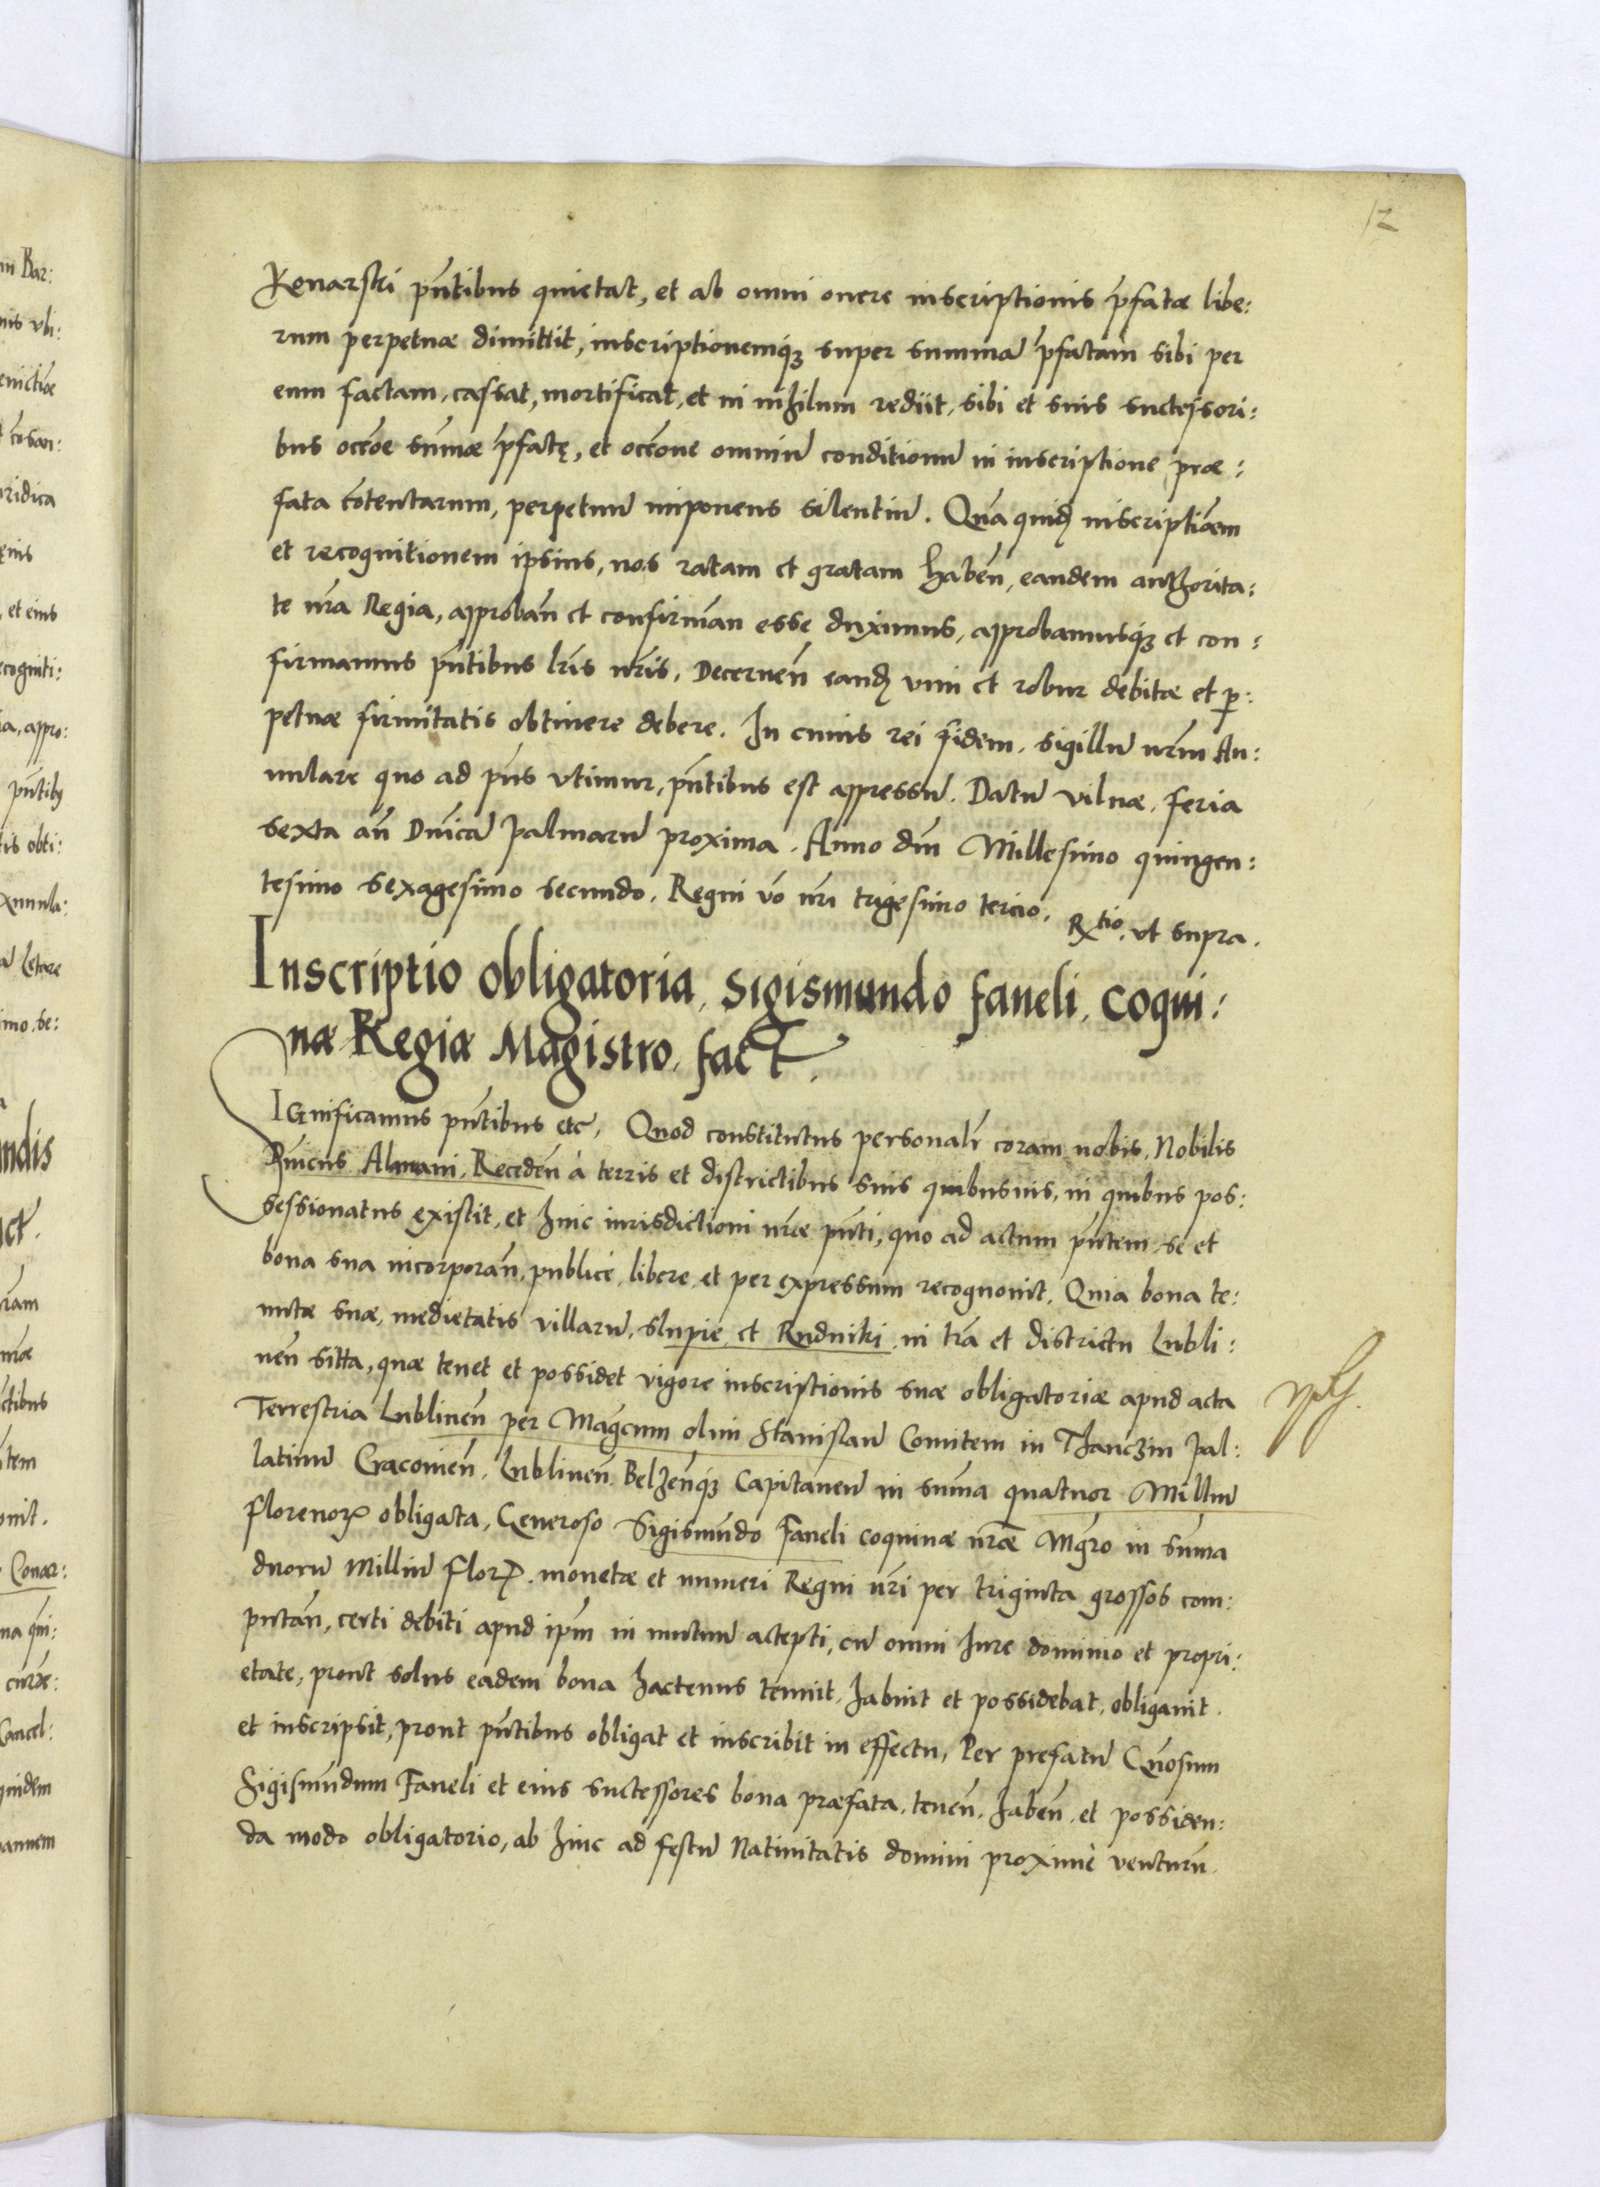 12
Kenarski pn̄tibus quietat, et ab omni onere inscriptionis p̄fatæ libe:
rum perpetuæ dimittit, inscriptionemq́ȝ super summā p̄fatam sibi per
eum factam, cassat, mortificat, et in nihilum rediit, sibi et suis successori:
bus occōe sūmæ p̄fatę, et occōone omniū conditionū in inscriptione præ:
fata cōtentarum, perpetuū imponens silentiū. Quā quid̨ inscriptiōem
et recognitionem ipsius, nos ratam et gratam habeñ, eandem authorita:
te nr̄a Regia, approbañ et confirmañ esse duximus, approbamusq́ȝ et con:
firmamus pn̄tibus lr̄is nr̄is, Decerneñ eand̨ vim et robur debitæ et ꝑ:
petuæ firmitatis obtinere debere. In cuius rei fidem, sigillū nr̄m An:
nulare quo ad pn̄s vtimur, pn̄tibus est appressū. Datū Vilnæ, feria
sexta añ Dn̄icā Palmarū proxima. Anno dn̄i Millesimo quingen:
tesimo sexagesimo secundo. Regni vō nr̄i trigesimo tercio. Rtio. vt supra.
Inscriptio obligatoria, Sigismundo Faneli, Coqui:
næ Regiæ Magistro, fact.
SIGnificamus pn̄tibus etc. Quod constitutus personalr̄ coram nobis, Nobilis
Almani, Recedeñ à terris et districtibus suis quibusuis, in quibus pos:
sessionatus existit, et huic iurisdictioni nr̄æ pn̄ti, quo ad actum pn̄tem se et
bona sua incorporañ, publicè, libere, et per expressum recognouit. Quia bona te:
nutæ suæ, medietatis villarū, Slupie et Rudniki, in tr̄a et districtu Lubli:
neñ sitta, quæ tenet et possidet vigore inscriptionis suæ obligatoriæ apud acta
Terrestria Lublineñ per Magcum olim Stanislaū Comitem in Thanczin Pal:
latinū Cracovieñ, Lublineñ Belzeñq́ȝ Capitaneū in sūma quatuor Milliū
florenoꝝ obligata, Generoso Sigismūdo Faneli coquinæ nr̄æ Mḡro in sūma
duorū Milliū Floꝝ. monetæ et numeri Regni nr̄i per triginta grossos com:
putañ, certi debiti apud ipm̄ in mutuū accepti, cū omni Iure dominio et propri:
etate, prout solus eadem bona hactenus tenuit, habuit et possidebat, obligauit
et inscripsit, prout pn̄tibus obligat et inscribit in effectu, Per prefatū Gn̄osum
Sigismūdum Faneli et eius successores bona præfata, teneñ, habeñ, et possiden:
da modo obligatorio, ab hinc ad festū Natiuitatis domini proximè venturū